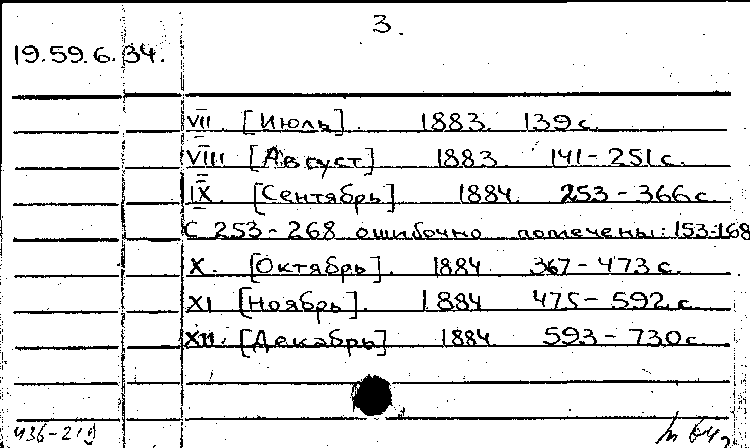 3.
19.59.6.34.
VII. [Июль]. 1883. 139 с.
VIII [Август] 1883. 141-251 с.
IX. [Сентябрь] 1884. 253-366 с.
С 253-268 ошибочно помечены: 153-168
X. [Октябрь]. 1884 367-473 с.
XI [Ноябрь]. 1884 475-592 с.
XII. [Декабрь] 1884. 593-730 с.
436-219